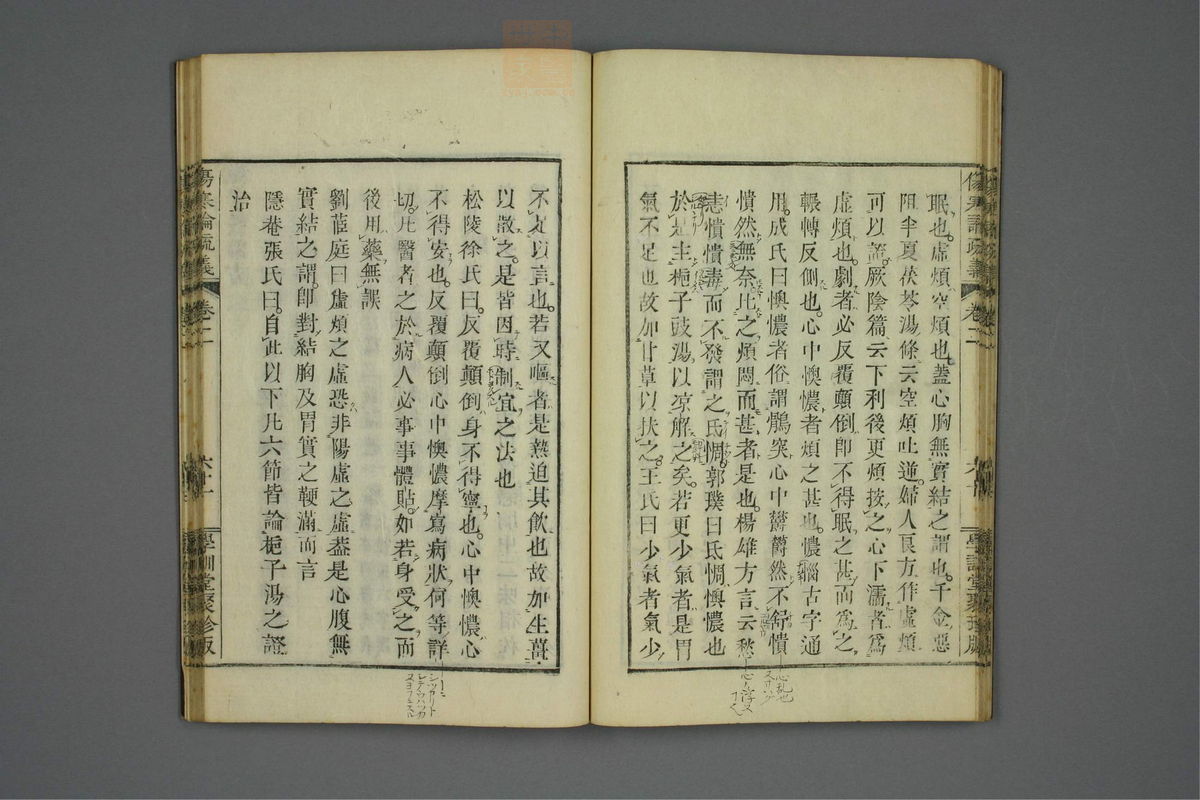 眠也。虛煩空煩也。蓋心胸無實結之謂也。千金惡
阻半夏茯苓湯條云空煩吐逆。婦人良方作虛煩
可以證。厥陰篇云下利後更煩按之心下濡者爲
虛煩也。劇者必反覆顛倒卽不得眠之甚而爲之
輾轉反側也。心中懊憹者煩之甚也。憹惱古字通
用。成氏曰懊憹者俗謂鶻突心中鬱鬱然不舒憒
憒然無奈比之煩悶而甚者是也。楊雄方言云愁
恚憒憒毒而不發謂之氐惆。郭璞曰氐惆懊憹也
於是主梔子豉湯以凉解之矣。若更少氣者是胃
氣不足也故加甘草以扶之。王氏曰少氣者氣少
不足以言也。若又嘔者是熱迫其飮也故加生薑
以散之。是皆因時制宜之法也
松陵徐氏曰。反覆顛倒身不得寧也。心中懊憹心
不得安也。反覆顛倒心中懊憹摩寫病狀何等詳
切。凡醫者之於病人必事事體貼。如若身受之而
後用藥無誤
劉茝庭曰虛煩之虛恐非陽虛之虛蓋是心腹無
實結之謂。卽對結胸及胃實之鞕滿而言
隱菴張氏曰。自此以下凡六節皆論梔子湯之證
治
傷寒論疏義
卷二
六十一
學訓堂聚珍版